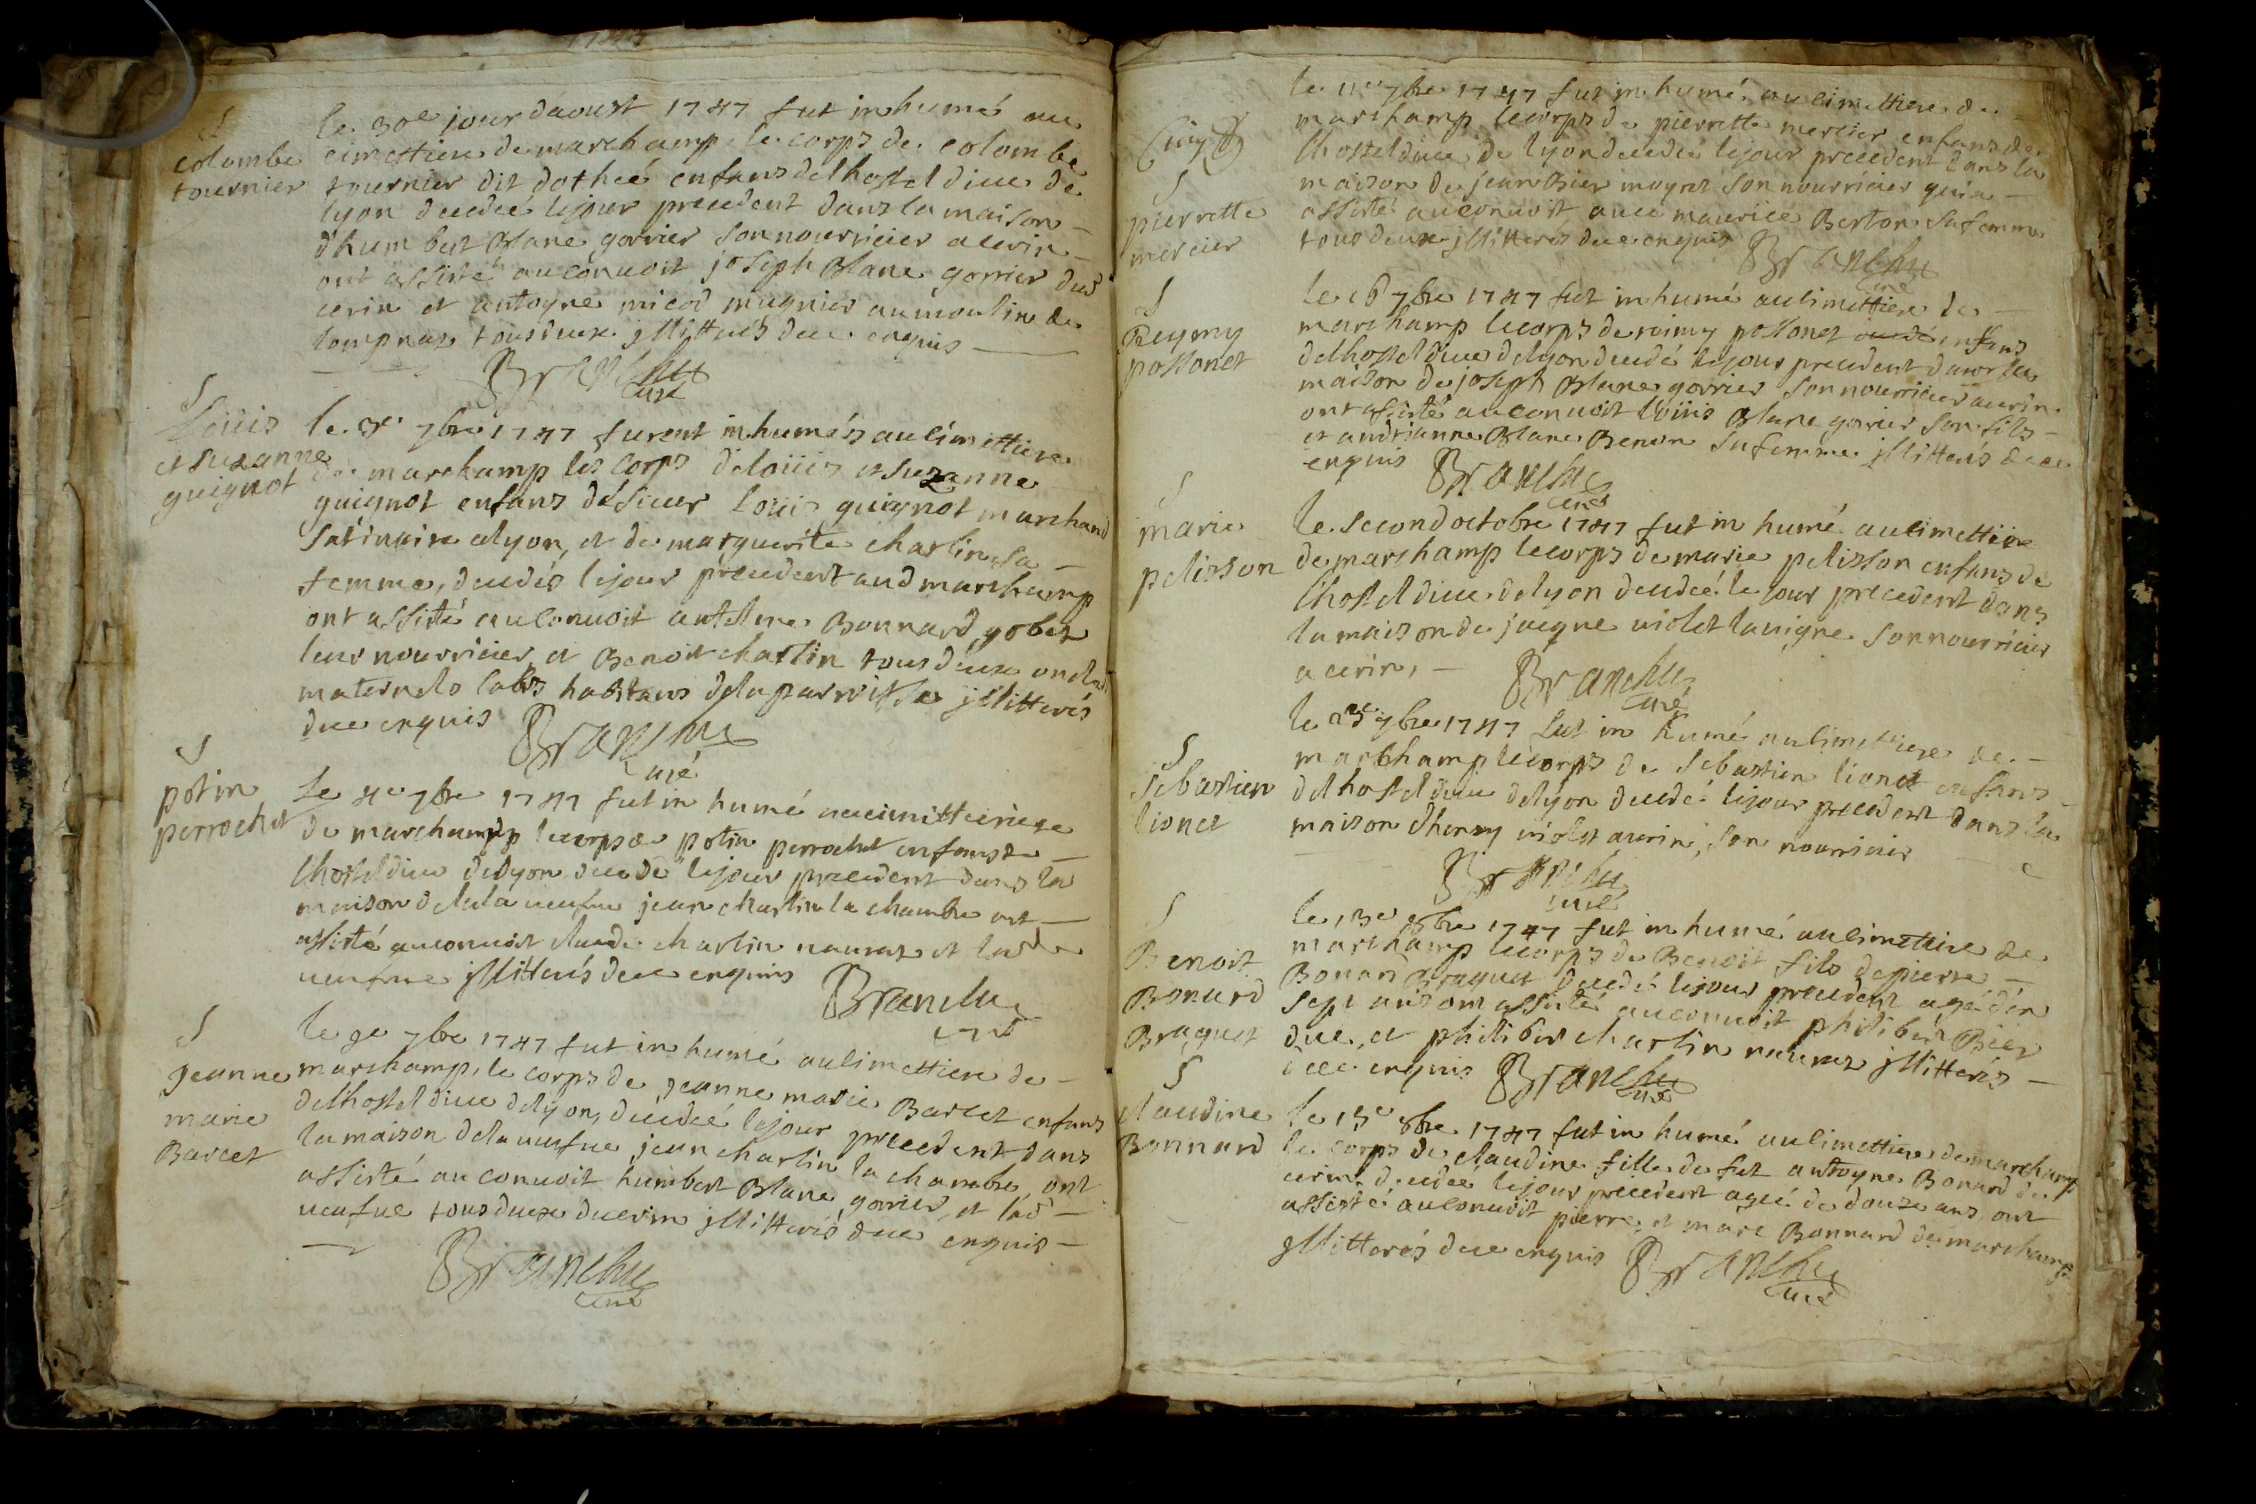 S
colombe
tournier
le 30e jour daoust 1747 fut inhumé au
cimettiere de marchamp le corps de colombe
tournier dit dothée enfans delhostel dieu de
lyon decedeé lejour precedent dans la maison
d'humbert Blanc gorrier son nourricier a cerin
ont assisté auconuoit joseph Blanc gorrier dud
cerin et antoyne micod mugnier au moulin de
tous deux jllitterés dece enquis
Branchu
curé
S
Loüis
et Suzanne
guignot
le 3e 7bre 1747 furent inhumés aucimettiere
de marchamp les corps deloüis et Suzanne
guignot enfans de Sieur Loüis guignot marchand
Satinaire alyon, et de marguerite charlin sa
femme, decedés lejour precedent aud marchamp
ont assisté auconuoit antelme Bonnard gobet
leur nourricier et Benoit charlin tous deux oncles
maternels labrs habitans delaparroisse jllitterés
dece enquis
Branchu
curé
S
potin
perrochet
Le 4e 7bre 1747 fut inhumé aucimittieriere
de marchampp lecorps de potin perrochet enfans de
lhostel dieu delyon decedé lejour precedent dans la
maison delala ueufue jean charlin la chambre ont
assisté auconuoit claude charlin nauraz et lade
ueufue jllitterés dece enquis
Branchu
curé
S
jeanne
marie
Barcet
le 9e 7bre 1747 fut inhumé aucimettiere de
marchamp, le corps de jeanne marie Barcet enfans
delhostel dieu delyon, decedeé lejour precedent dans
la maison dela ueufue jean charlin la chambre, ont
assisté au conuoit humbert Blanc gorrier, et lad
ueufue tous deux ducerin jllitterés dece enquis
Branchu
curé
S
pierrette
mercier
le 11e 7bre 1747 fut inhumé aucimettiere de
marchamp lecorps de pierrette mercier enfans de
lhostel dieu de lyon decedeé lejour precedent dans la
maison de jean Bier moynet son nourricier qui a
assisté auconuoit auec mauricé Berton sa femme
tous deux jllitterés dece enquis
Branchu
curé
S
Reymy
possonet
le 16 7bre 1747 fut inhumé aucimettiere de
marchamp lecorps de reimy possonet enfans
delhostel dieu delyon decedé lejour precedent dans la
maison de joseph Blanc gorrier son nourricier acerin
ont assisté auconuoit Loüis Blanc gorrier son fils
et andrianne Blanc Benon sa femme jllitterés dece
enquis
Branchu
curé
S
marie
pelisson
le second octobre 1747 fut inhumé aucimettiere
de marchamp lecorps de marie pelisson enfans de
lhostel dieu delyon decedeé le jour precedent dans
la maison de jacque uiolet lauigne son nourricier
a cerin,
Branchu
curé
S
sebastien
lionet
7bre 1747 fut inhumé aucimettiere de
marchamp lecorps de sebastien lionet enfans
delhostel dieu delyon decedé lejour precedent dans la
maison dhenry uiolet acerin, son nourricier
Branchu
curé
S
Benoit
Bonard
Braguet
le 13e 8bre 1747 fut inhumé aucimettiere de
marchamp lecorps de Benoit fils depierre
Bonard Braguet decedé lejour precedent agé d'en
sept ans ont assisté auconuoit philibert Bier
due, et philibert charlin nauraz jllitterés
dece enquis
Branchu
curé
S
claudine
Bonnard
le 15e 8bre 1747 fut inhumé aucimettiere demarchamp
le corps de claudine fille de fut antoyne Bonard de
cerin decedeé lejour precedent ageé de douze ans ont
assisté auconuoit pierre, et marc Bonnard de marchamp
jllitterés dece enquis
Branchu
curé